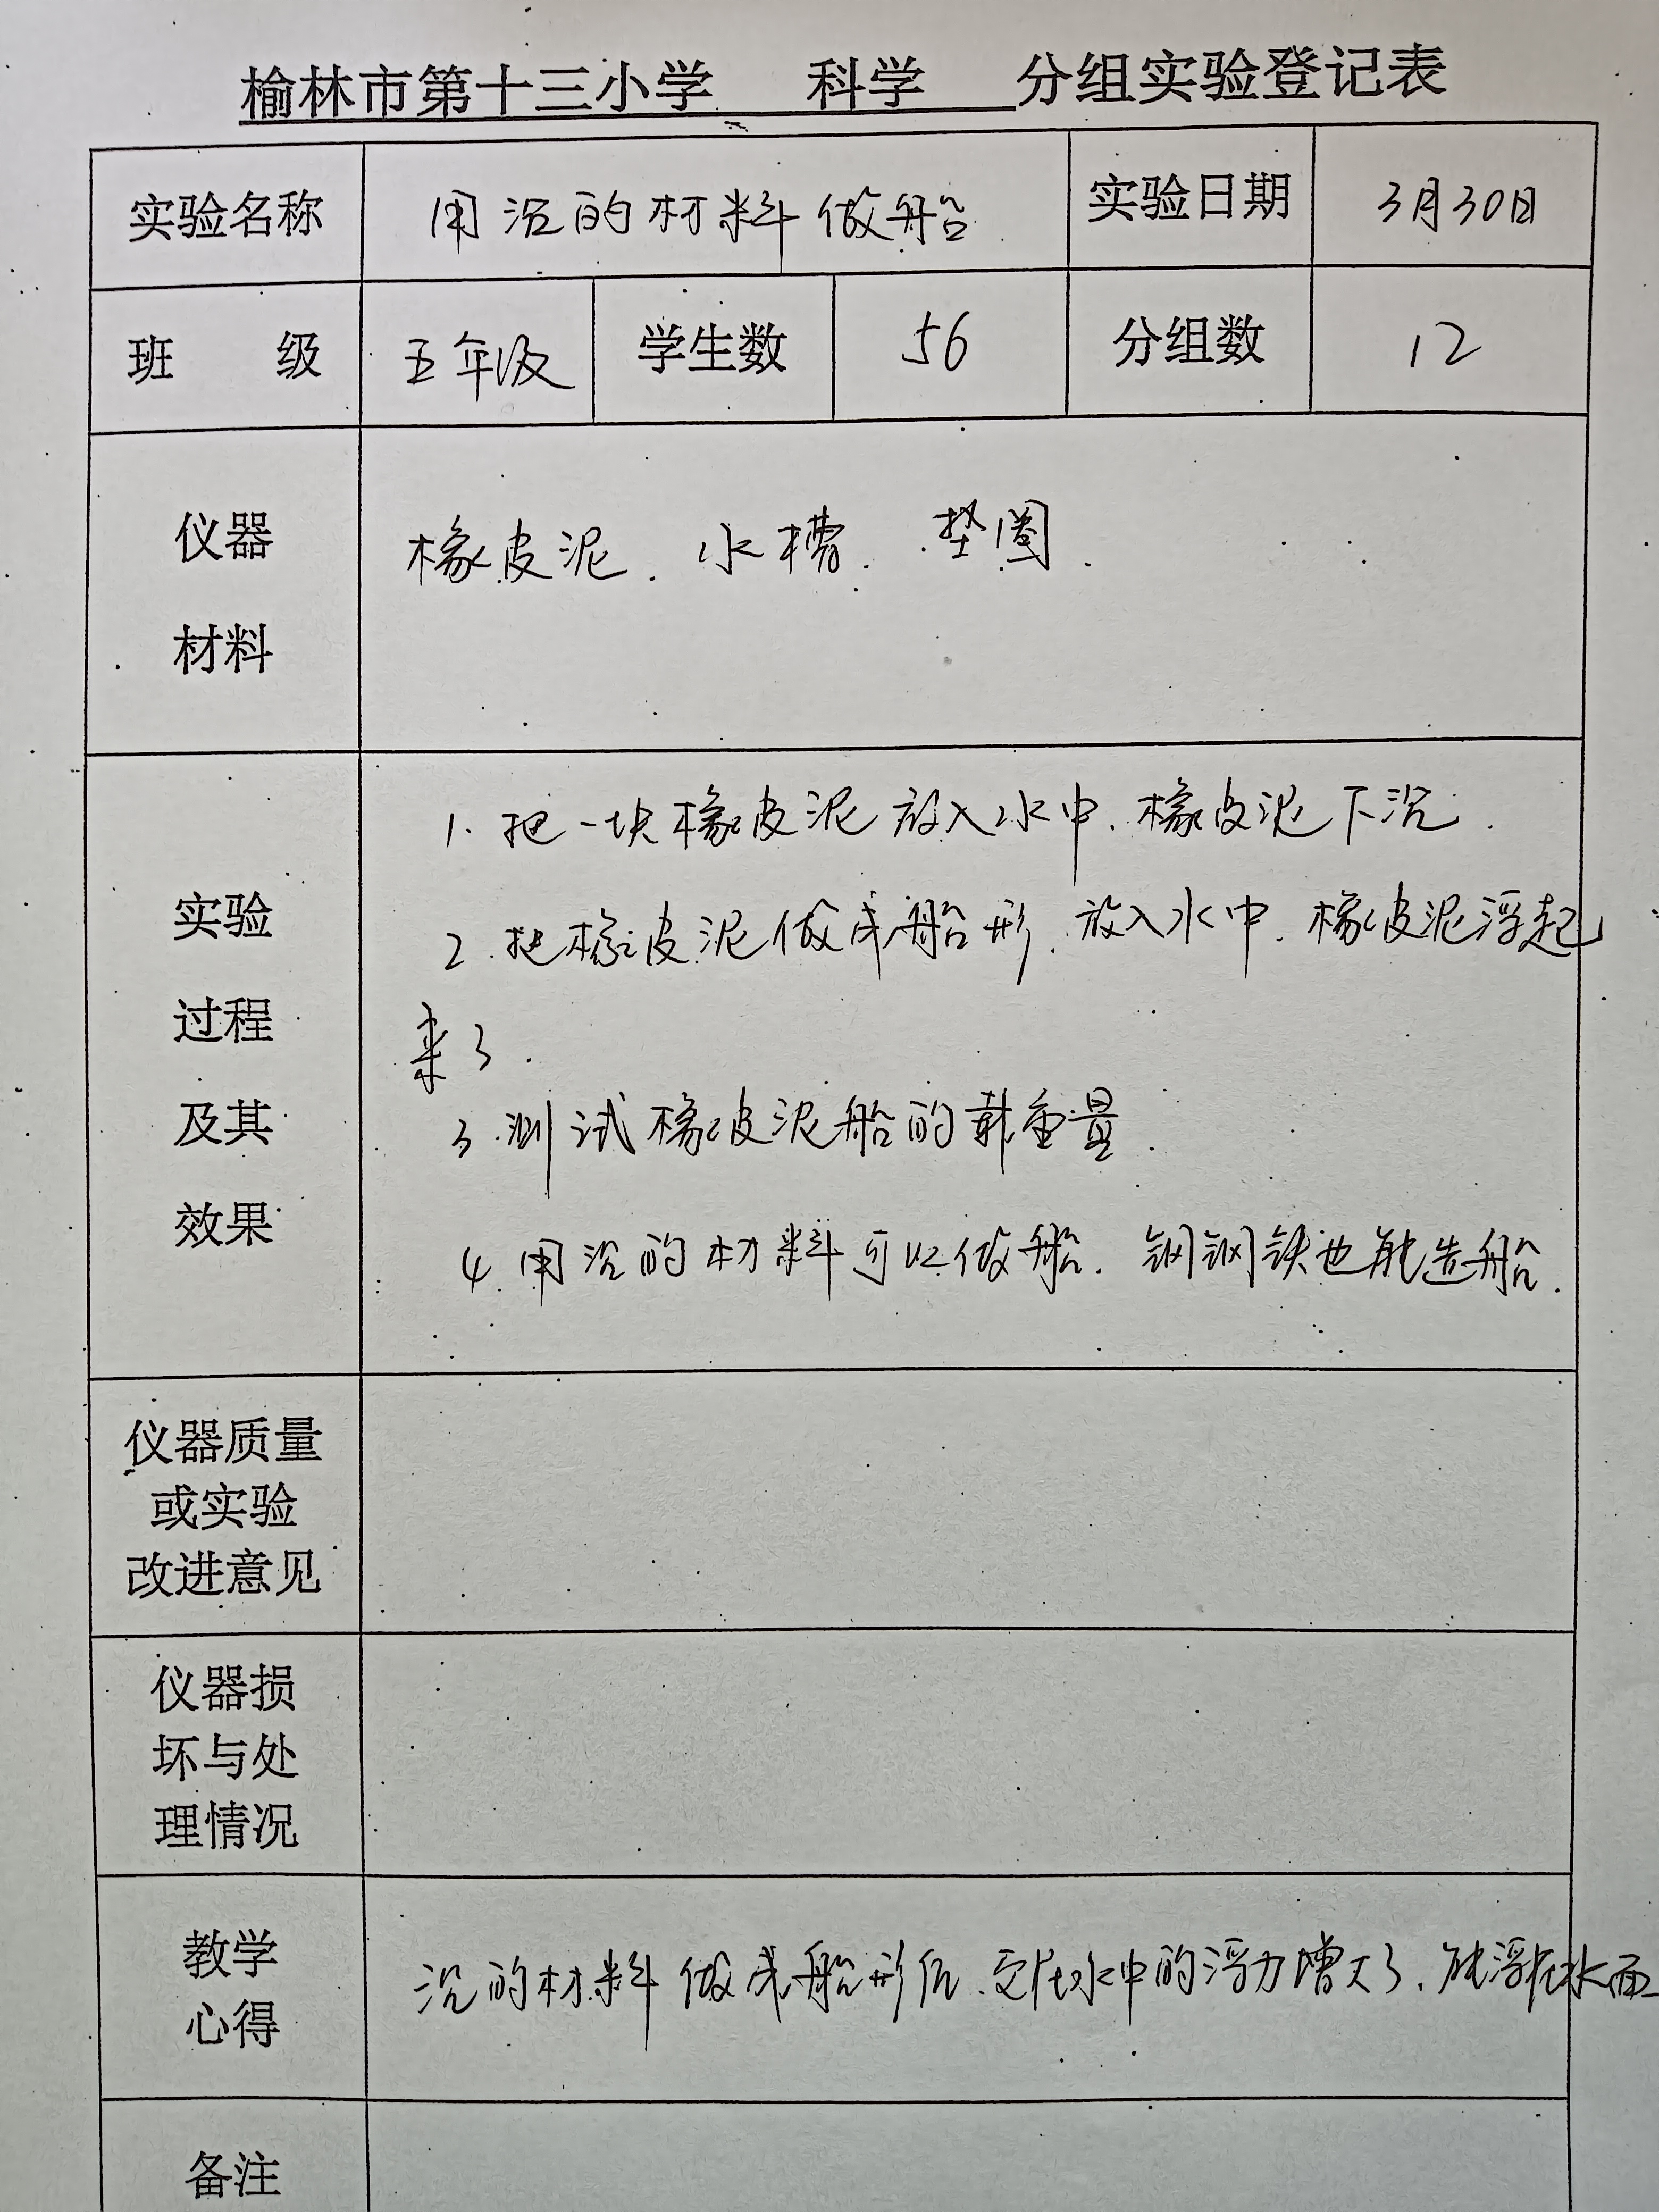 榆林市第十三小学 科学 分组实验登记表
实验名称 用沉的材料做船 实验日期 3月30日
班 级 五年级 学生数 56 分组数 12
仪器
材料
橡皮泥、水槽、垫圈.
实验
过程
及其
效果
1. 把一块橡皮泥放入水中、橡皮泥下沉.
2. 把橡皮泥做成船形、放入水中、橡皮泥浮起
来了.
3. 测试橡皮泥船的载重量.
4. 用沉的材料可以做船、钢钢铁也能造船.
仪器质量
或实验
改进意见
仪器损
坏与处
理情况
教学
心得
沉的材料做成船形后、受在水中的浮力增大了、能浮在水面
备注